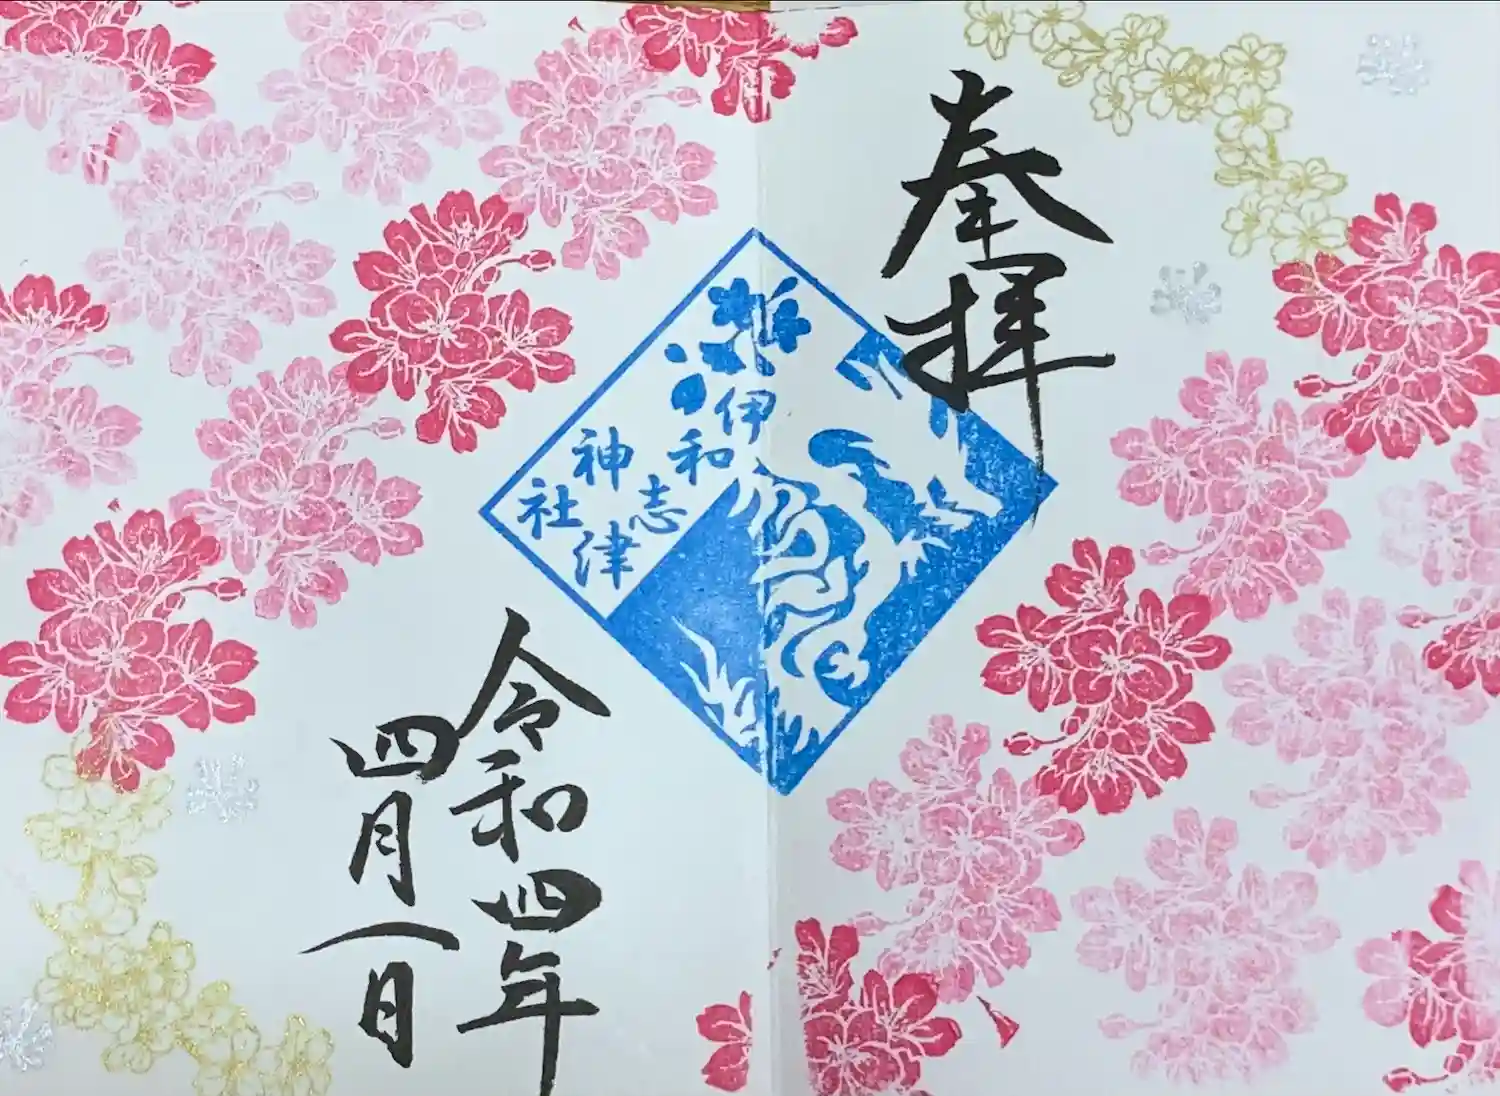 奉拝
伊和
志津
神社
令和四年
四月一日